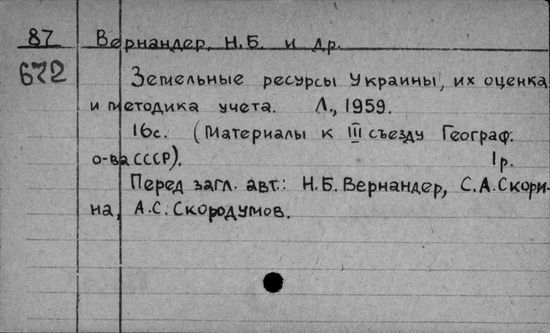 87 Вернандер, Н.Б. и др.
672 Земельные ресурсы Украины, их оценка
и методика учета. Л., 1959.
16с. (Материалы к III съезду Географ.
о-ва СССР). 1р.
Перед загл. авт.: Н.Б. Вернандер, С.А. Скори-
на, А.С. Скородумов.